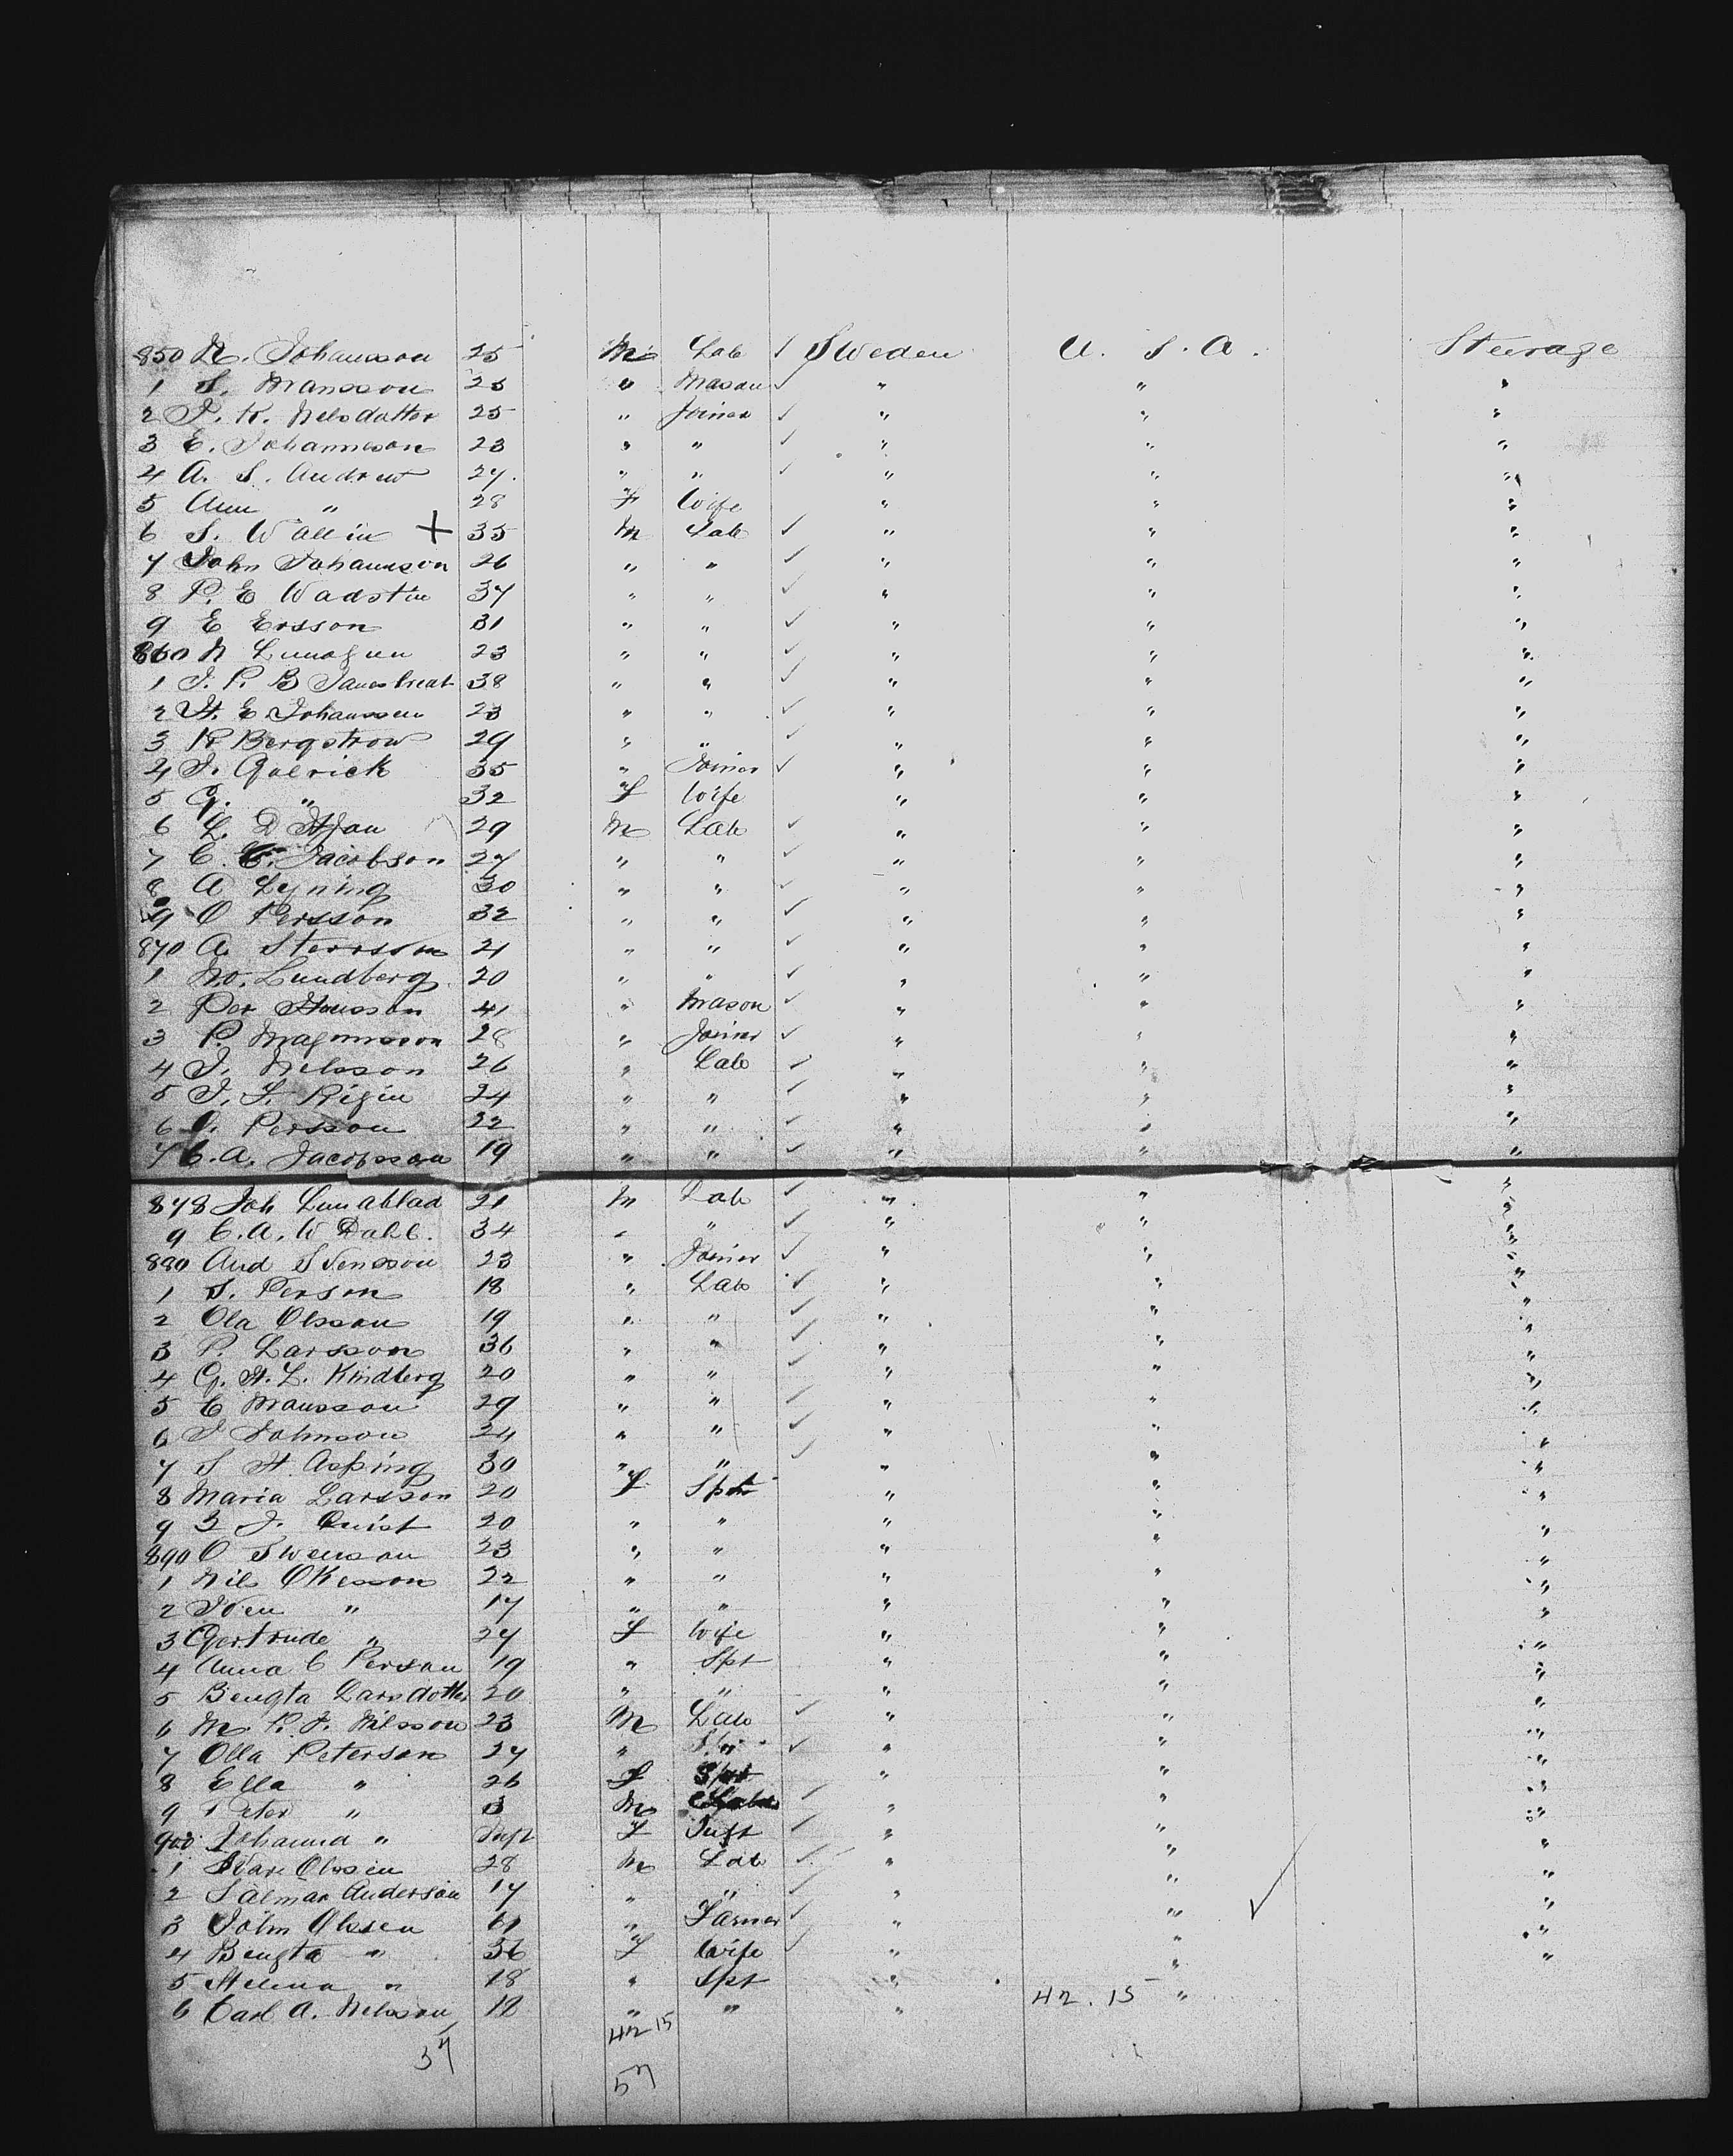 850 N. Johansson 25 M Lab ✓ Sweden U. S. A. Steerage
1 S. Mansson 25 " Mason ✓ " " "
2 J. K. Nelsdatter 25 " Joiner ✓ " " "
3 E. Johanneson 23 " " ✓ " " "
4 A. S. Andrew 27 " " ✓ " " "
5 Ann " 28 F Wife " " "
6 S. Wallin + 35 M Lab ✓ " " "
7 John Johansson 26 " " ✓ " " "
8 P. E Wadstin 37 " " ✓ " " "
9 E Ersson 31 " " ✓ " " "
860 N 23 " " ✓ " " "
1 J. P. B 38 " " ✓ " " "
2 H. E Johanssen 23 " " ✓ " " "
3 K Bergstrow 29 " " ✓ " " "
4 J. Gulrick 35 " Joiner ✓ " " "
5 G. " 32 F Wife " " "
6 L. D 29 M Lab ✓ " " "
7 C. Jacobson 27 " " ✓ " " "
8 A Lyning 30 " " ✓ " " "
9 O Persson 32 " " ✓ " " "
870 A Sterrsson 21 " " ✓ " " "
1 No. Lundberg 20 " " ✓ " " "
2 Per Hansson 41 " Mason ✓ " " "
3 P. Magnusson 28 " Joiner ✓ " " "
4 J. Nelsson 26 " Lab ✓ " " "
5 J. F. Rigin 24 " " ✓ " " "
6 O. Persson 22 " " ✓ " " "
7 C. A. Jacobsson 19 " " ✓ " " "
878 Joh Lunablad 21 M Lab ✓ " " "
9 C. A. W Dahl. 34 " " ✓ " " "
880 And Svensson 23 " Joiner ✓ " " "
1 S. Person 18 " Lab ✓ " " "
2 Ola Olsson 19 " " ✓ " " "
3 P. Larsson 36 " " ✓ " " "
4 G. H. L. Kindberg 20 " " ✓ " " "
5 C Mansson 29 " " ✓ " " "
6 J Johnson 24 " " ✓ " " "
7 S H. Asping 30 " " ✓ " " "
8 Maria Larsson 20 F Spt " " "
9 B J. Quist 20 " " " " "
890 O Swenson 23 " " " " "
1 Nils Okesson 22 " " " " "
2 Sven " 17 " " " " "
3 Gertrude " 27 F Wife " " "
4 Anna C Person 19 " Spt " " "
5 Bengta Larsdotter 20 " " " " "
6 M. P. J. Nilsson 23 M Lab ✓ " " "
7 Olla Peterson 27 " " ✓ " " "
8 Ella " 26 F " " "
9 Peter " 3 M ✓ " " "
900 Johanna " Inft F Inft ✓ " " "
1 Olssen 28 M Lab ✓ " " "
2 Salmar Anderson 17 " " ✓ " " "
3 John Olssen 61 " Farmer ✓ " " "
4 Bengta " 56 F Wife ✓ " " "
5 Helena " 18 " Spt " "
6 Carl A. Nelsson 12 " " " 42. 15 "
37 42 15
57